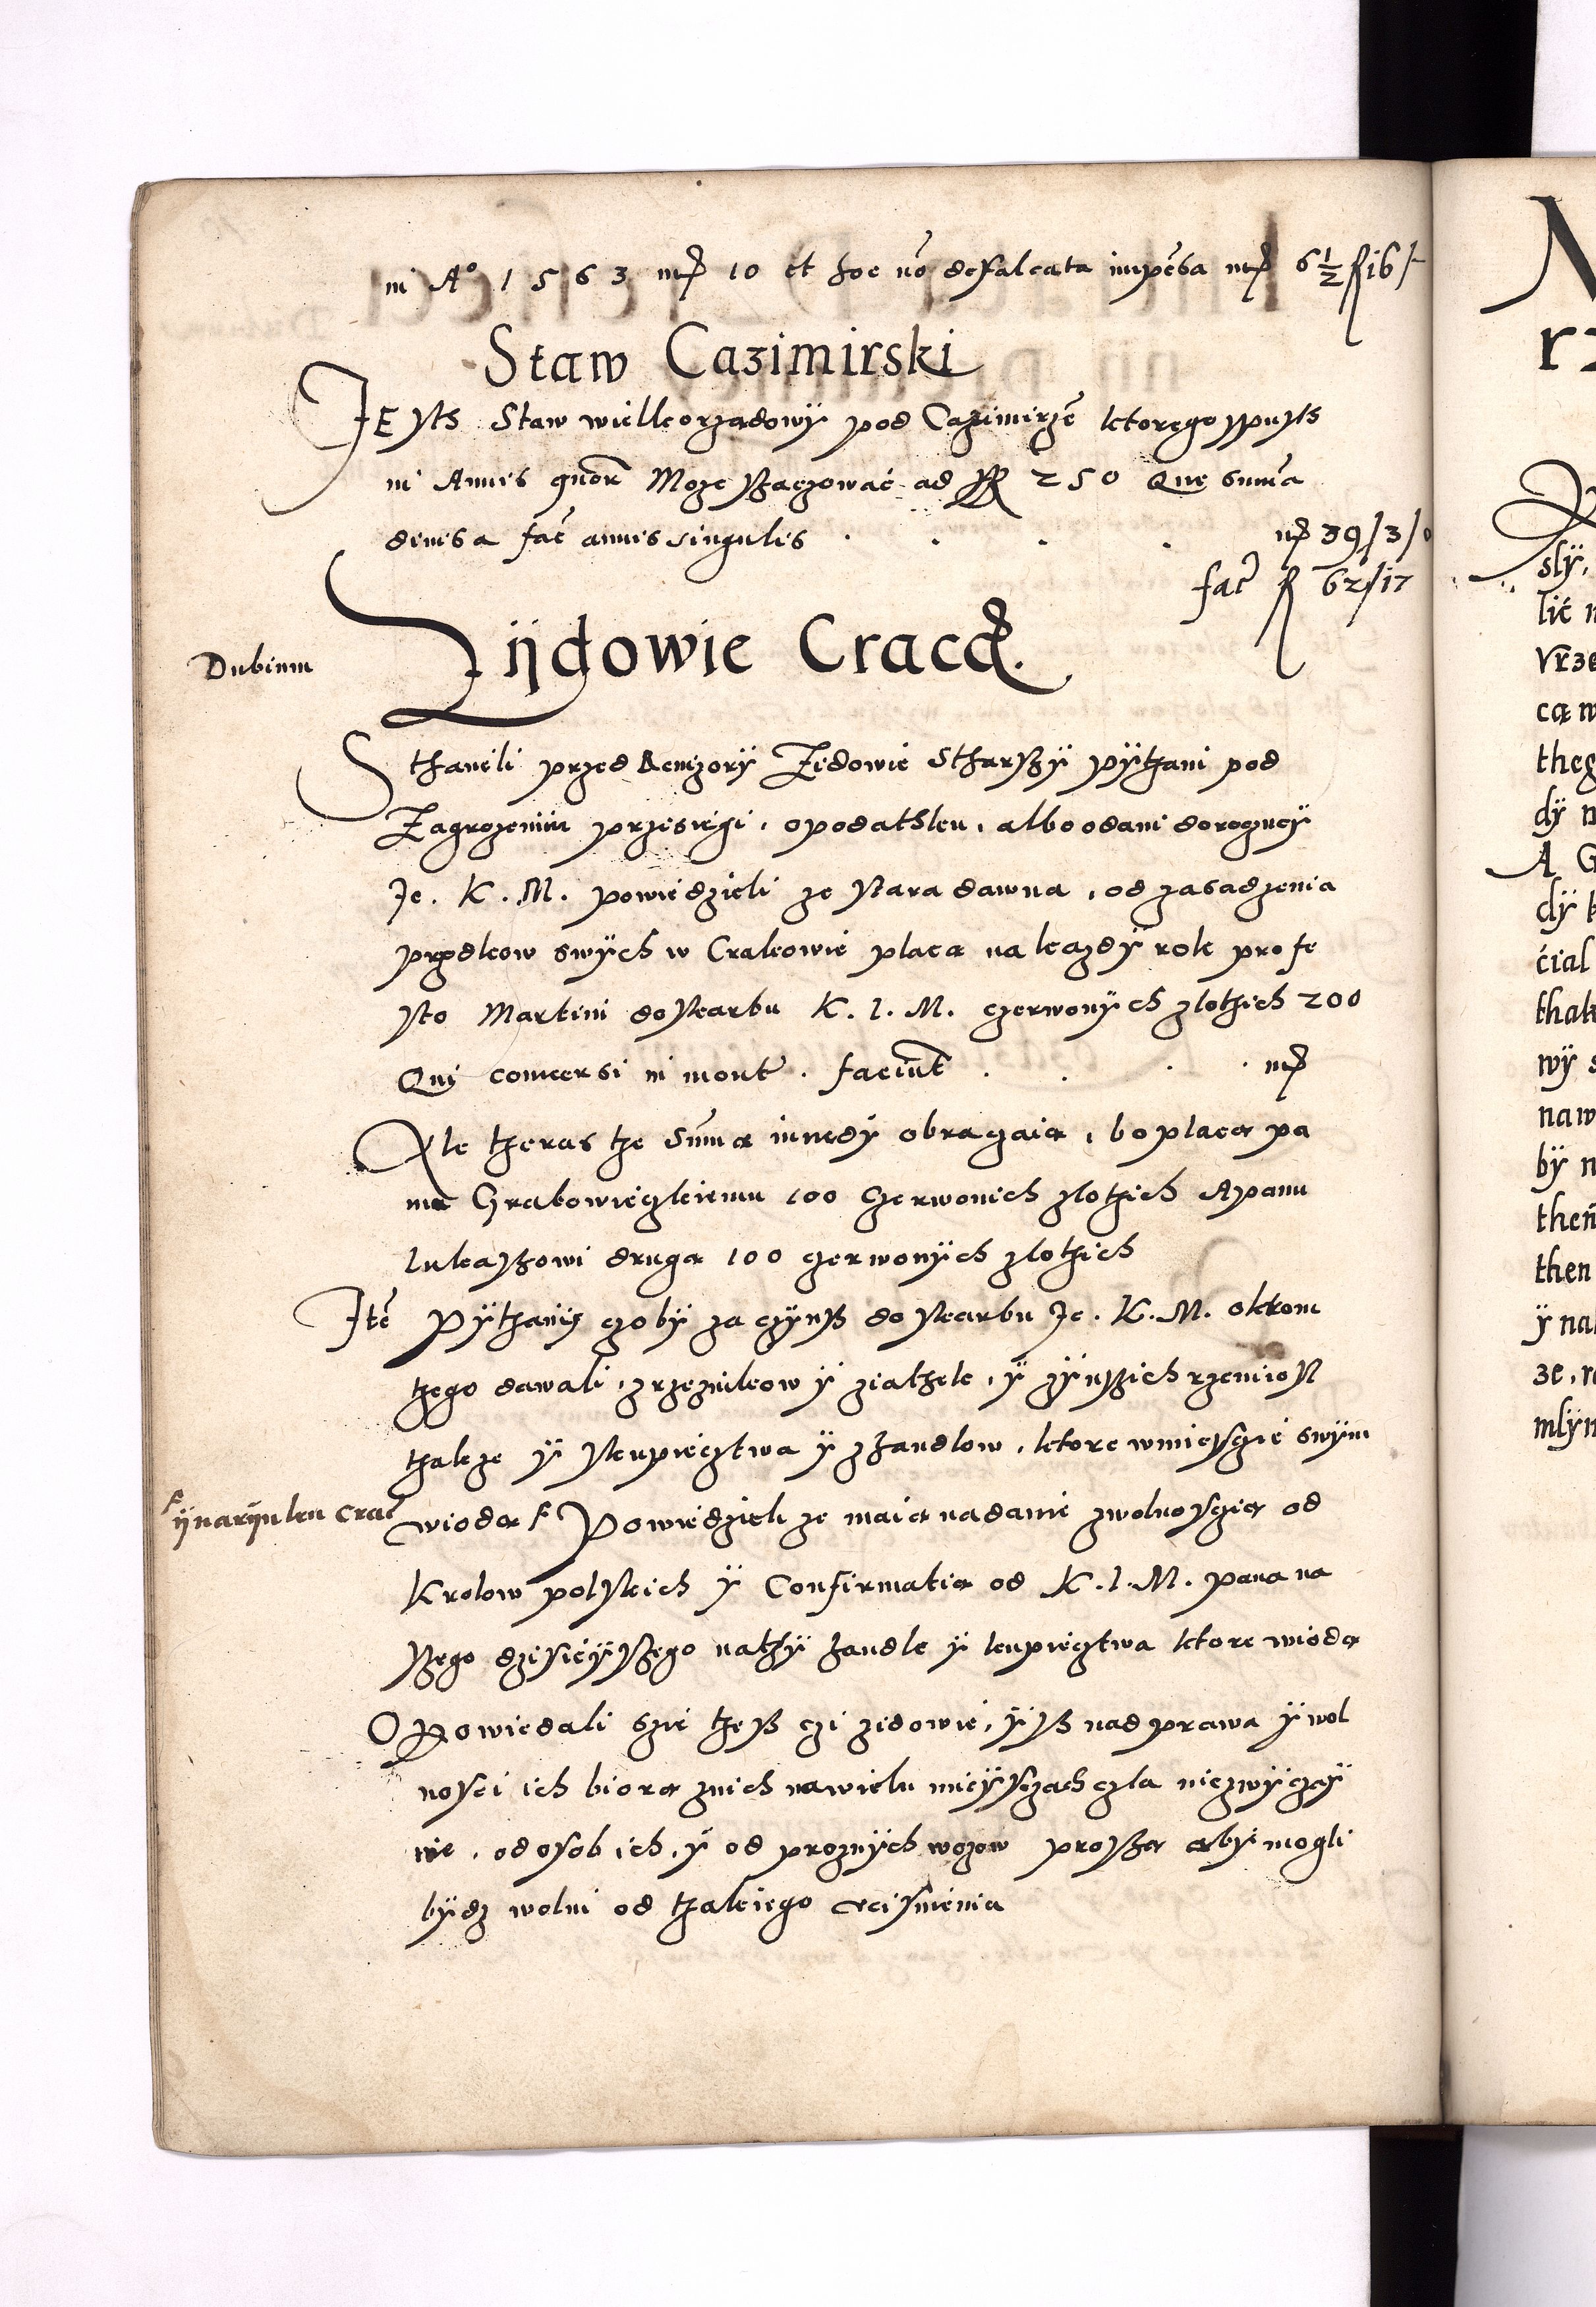 in A° 1563 mꝶ 10 et hoc nō defalcata impēsa mꝶ 6 1/2 ꝶ 16
Staw Cazimirski
Jest Staw wielkorządowÿ pod Cazimirzē ktorego spust
in Annis Może szaczowac ad 250 Que sumā
diuisa fac annis singulis . . . . mꝶ 39/3/0
fac 62/17
Dubium
Zÿdowie Crac.
Sthaneli przed Rewizorÿ Zidowie Stharszÿ pÿthani pod
Zagrozenim przisiegi, o podathku, albo odani dorocznej
Je. K. M. powiedzieli ze stara dawna, od zasadzenia
przodkow swÿch w Crakowie placą na kazdÿ rok pro fe
sto Martini do skarbu K. J. M. czerwonÿch zlothich 200
Qui conuersi in monet. faciunt . . . . mꝶ
Ale theras the Summą inedÿ obraczaią, bo placą pa
nu Grabowieczkiemu 100 Czerwonich zlothich A panu
lukaszowi drugą 100 czerwonÿch zlothich
Itē Pÿthani czo bÿ za czÿnsz do skarbu Je. K. M. okrom
thego dawali, z rzeznikow ÿ ziathek, ÿ z ÿnszich rzemiosl
thakze ÿ skupiecztwa ÿ z handlow, ktore w miesczie swÿm
ÿ na rÿnku Crac
wiodą Powiedzieli ze maią nadanie z wolnosczią od
Krolow polskich ÿ Confirmatią od K. J. M. pana na
szego dzisieÿszego na thÿ handle ÿ kupiecztwa ktore wiodą
Opowiedali szie thesz czi zidowie, ÿsz nad prawa ÿ wol
nosci ich biorą z nich na wielu mieÿsczach czla niezwÿczaÿ
ne, od osob ich, ÿ od proznÿch wozow proszą abÿ mogli
bÿdz wolni od thakiego vcisnienia